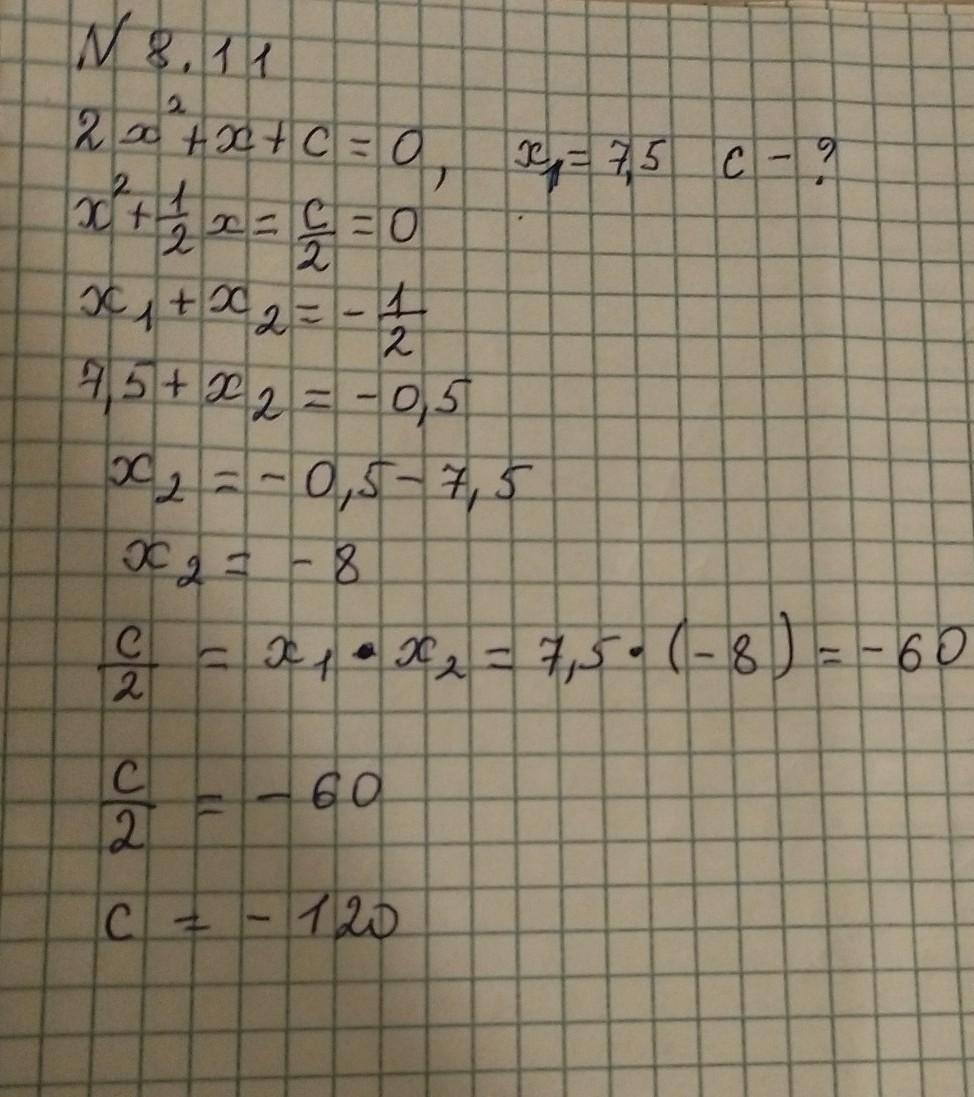 N 8.11
2x² + x + c = 0, x₁ = 7,5 c - ?
x² + 1/2 x = c/2 = 0
x₁ + x₂ = - 1/2
7,5 + x₂ = -0,5
x₂ = - 0,5 - 7,5
x₂ = - 8
c/2 = x₁ • x₂ = 7,5 · (-8) = -60
c/2 = - 60
c = - 120